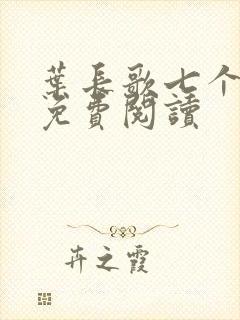 葉長歌七个
免費閱讀
卉之霞